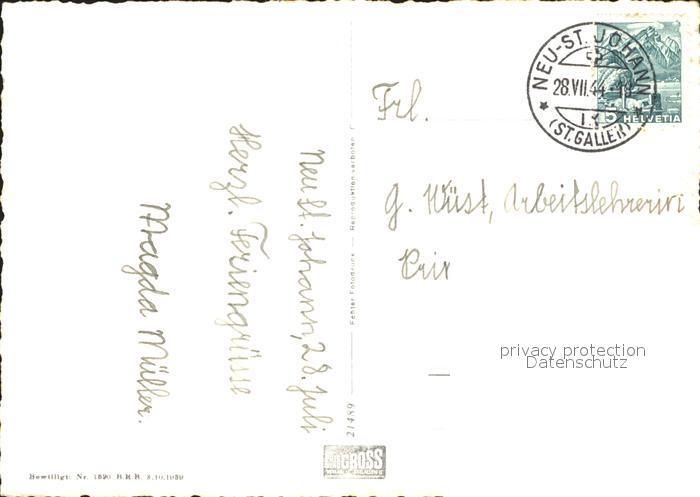 Neu St. Johann, 28. Juli
Herzl. Feriengrüsse
Magda Müller.
Bewilligt: Nr. 1590 B.R.B. 3.10.1939
21489
Echter Fotodruck — Reproduktion verboten
GROSS
NEU-ST. JOHANN
28.VII.44
(ST. GALLEN)
HELVETIA
Frl.
G. Wüst, Arbeitslehrerin
privacy protection
Datenschutz